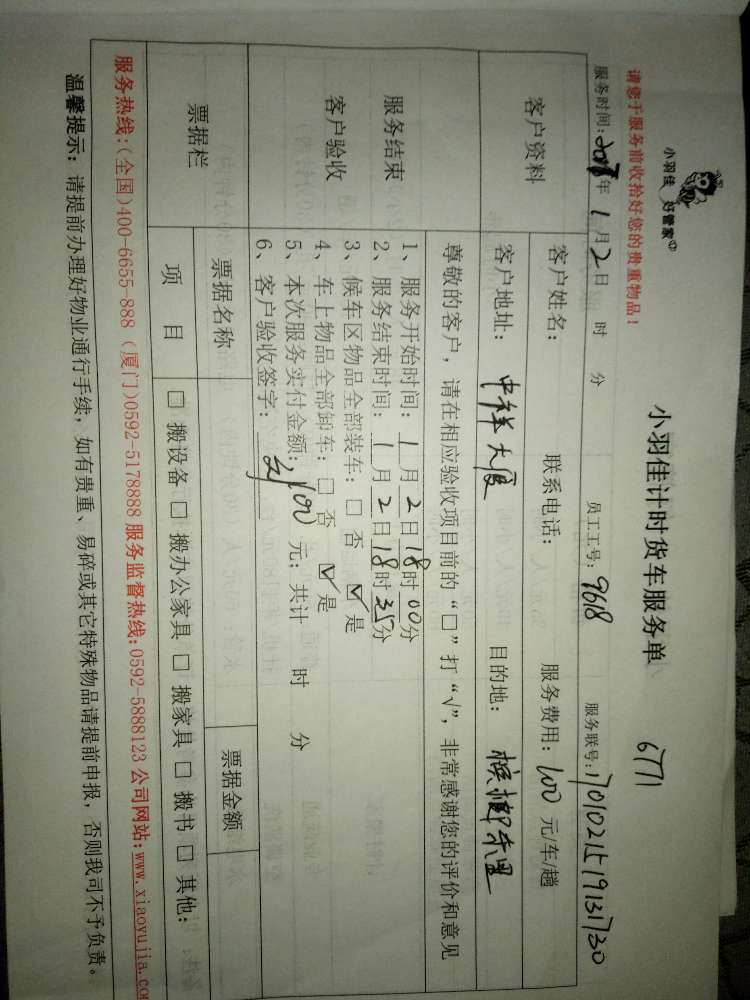 小羽佳 好管家
小羽佳计时货车服务单
6771
请您于服务前收拾好您的贵重物品！
服务时间：年 1月2日 时 分 员工工号：9618 服务联号：1701021519131730
客户资料
客户姓名： 联系电话： 服务费用：100 元/车/趟
客户地址：中祥大厦 目的地：槟榔东里
服务结束
客户验收
尊敬的客户，请在相应验收项目前的“□”打“√”，非常感谢您的评价和意见
1、服务开始时间：1月2日18时00分
2、服务结束时间：1月2日18时35分
3、候车区物品全部装车：□ 否 ☑ 是
4、车上物品全部卸车：□ 否 ☑ 是
5、本次服务实付金额：100 元；共计 时 分
6、客户验收签字：
票据栏
票据名称 票据金额
项 目 □ 搬设备 □ 搬办公家具 □ 搬家具 □ 搬书 □ 其他：
服务热线：(全国)400-6655-888 (厦门)0592-5178888 服务监督热线：0592-5888123 公司网站：www.xiaoyujia.co
温馨提示：请提前办理好物业通行手续，如有贵重、易碎或其它特殊物品请提前申报，否则我司不予负责。